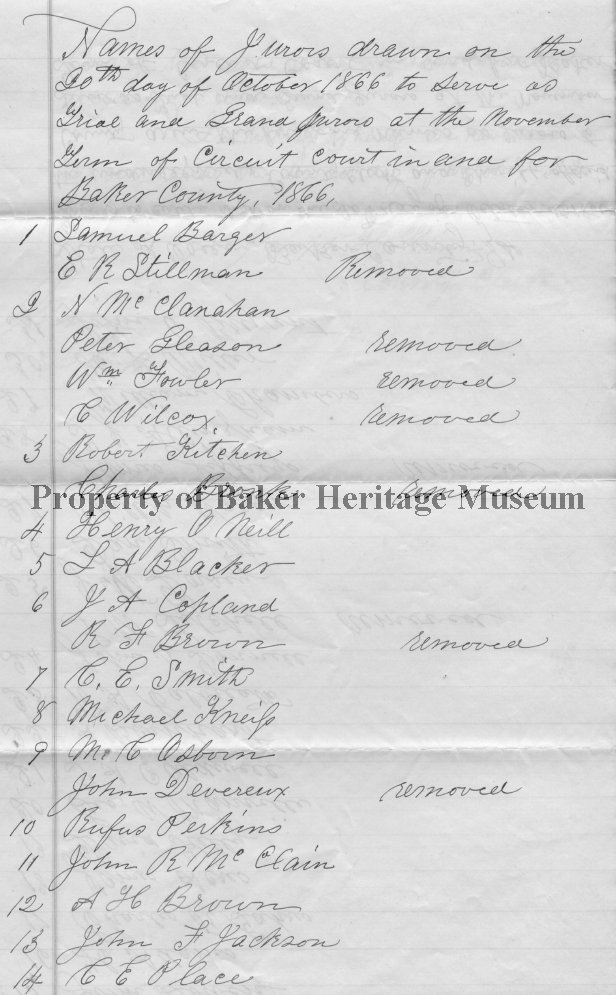 Names of Jurors drawn on the
20th day of October 1866 to serve as
Trial and Grand Jurors at the November
Term of Circuit court in and for
Baker County, 1866,
1 Samuel Barger
E R Stillman Removed
2 N McClanahan
Peter Gleason removed
Wm Fowler removed
C Wilcox. removed
3 Robert Kitchen
Charles removed
Property of Baker Heritage Museum
4 Henry O Neill
5 L A Blacker
6 J A Copland
R F Brown removed
7 C. E. Smith
8 Michael Kneiss
9 M C Osborn
John Devereux removed
10 Rufus Perkins
11 John R McClain
12 A H Brown
13 John F Jackson
14 C E Place